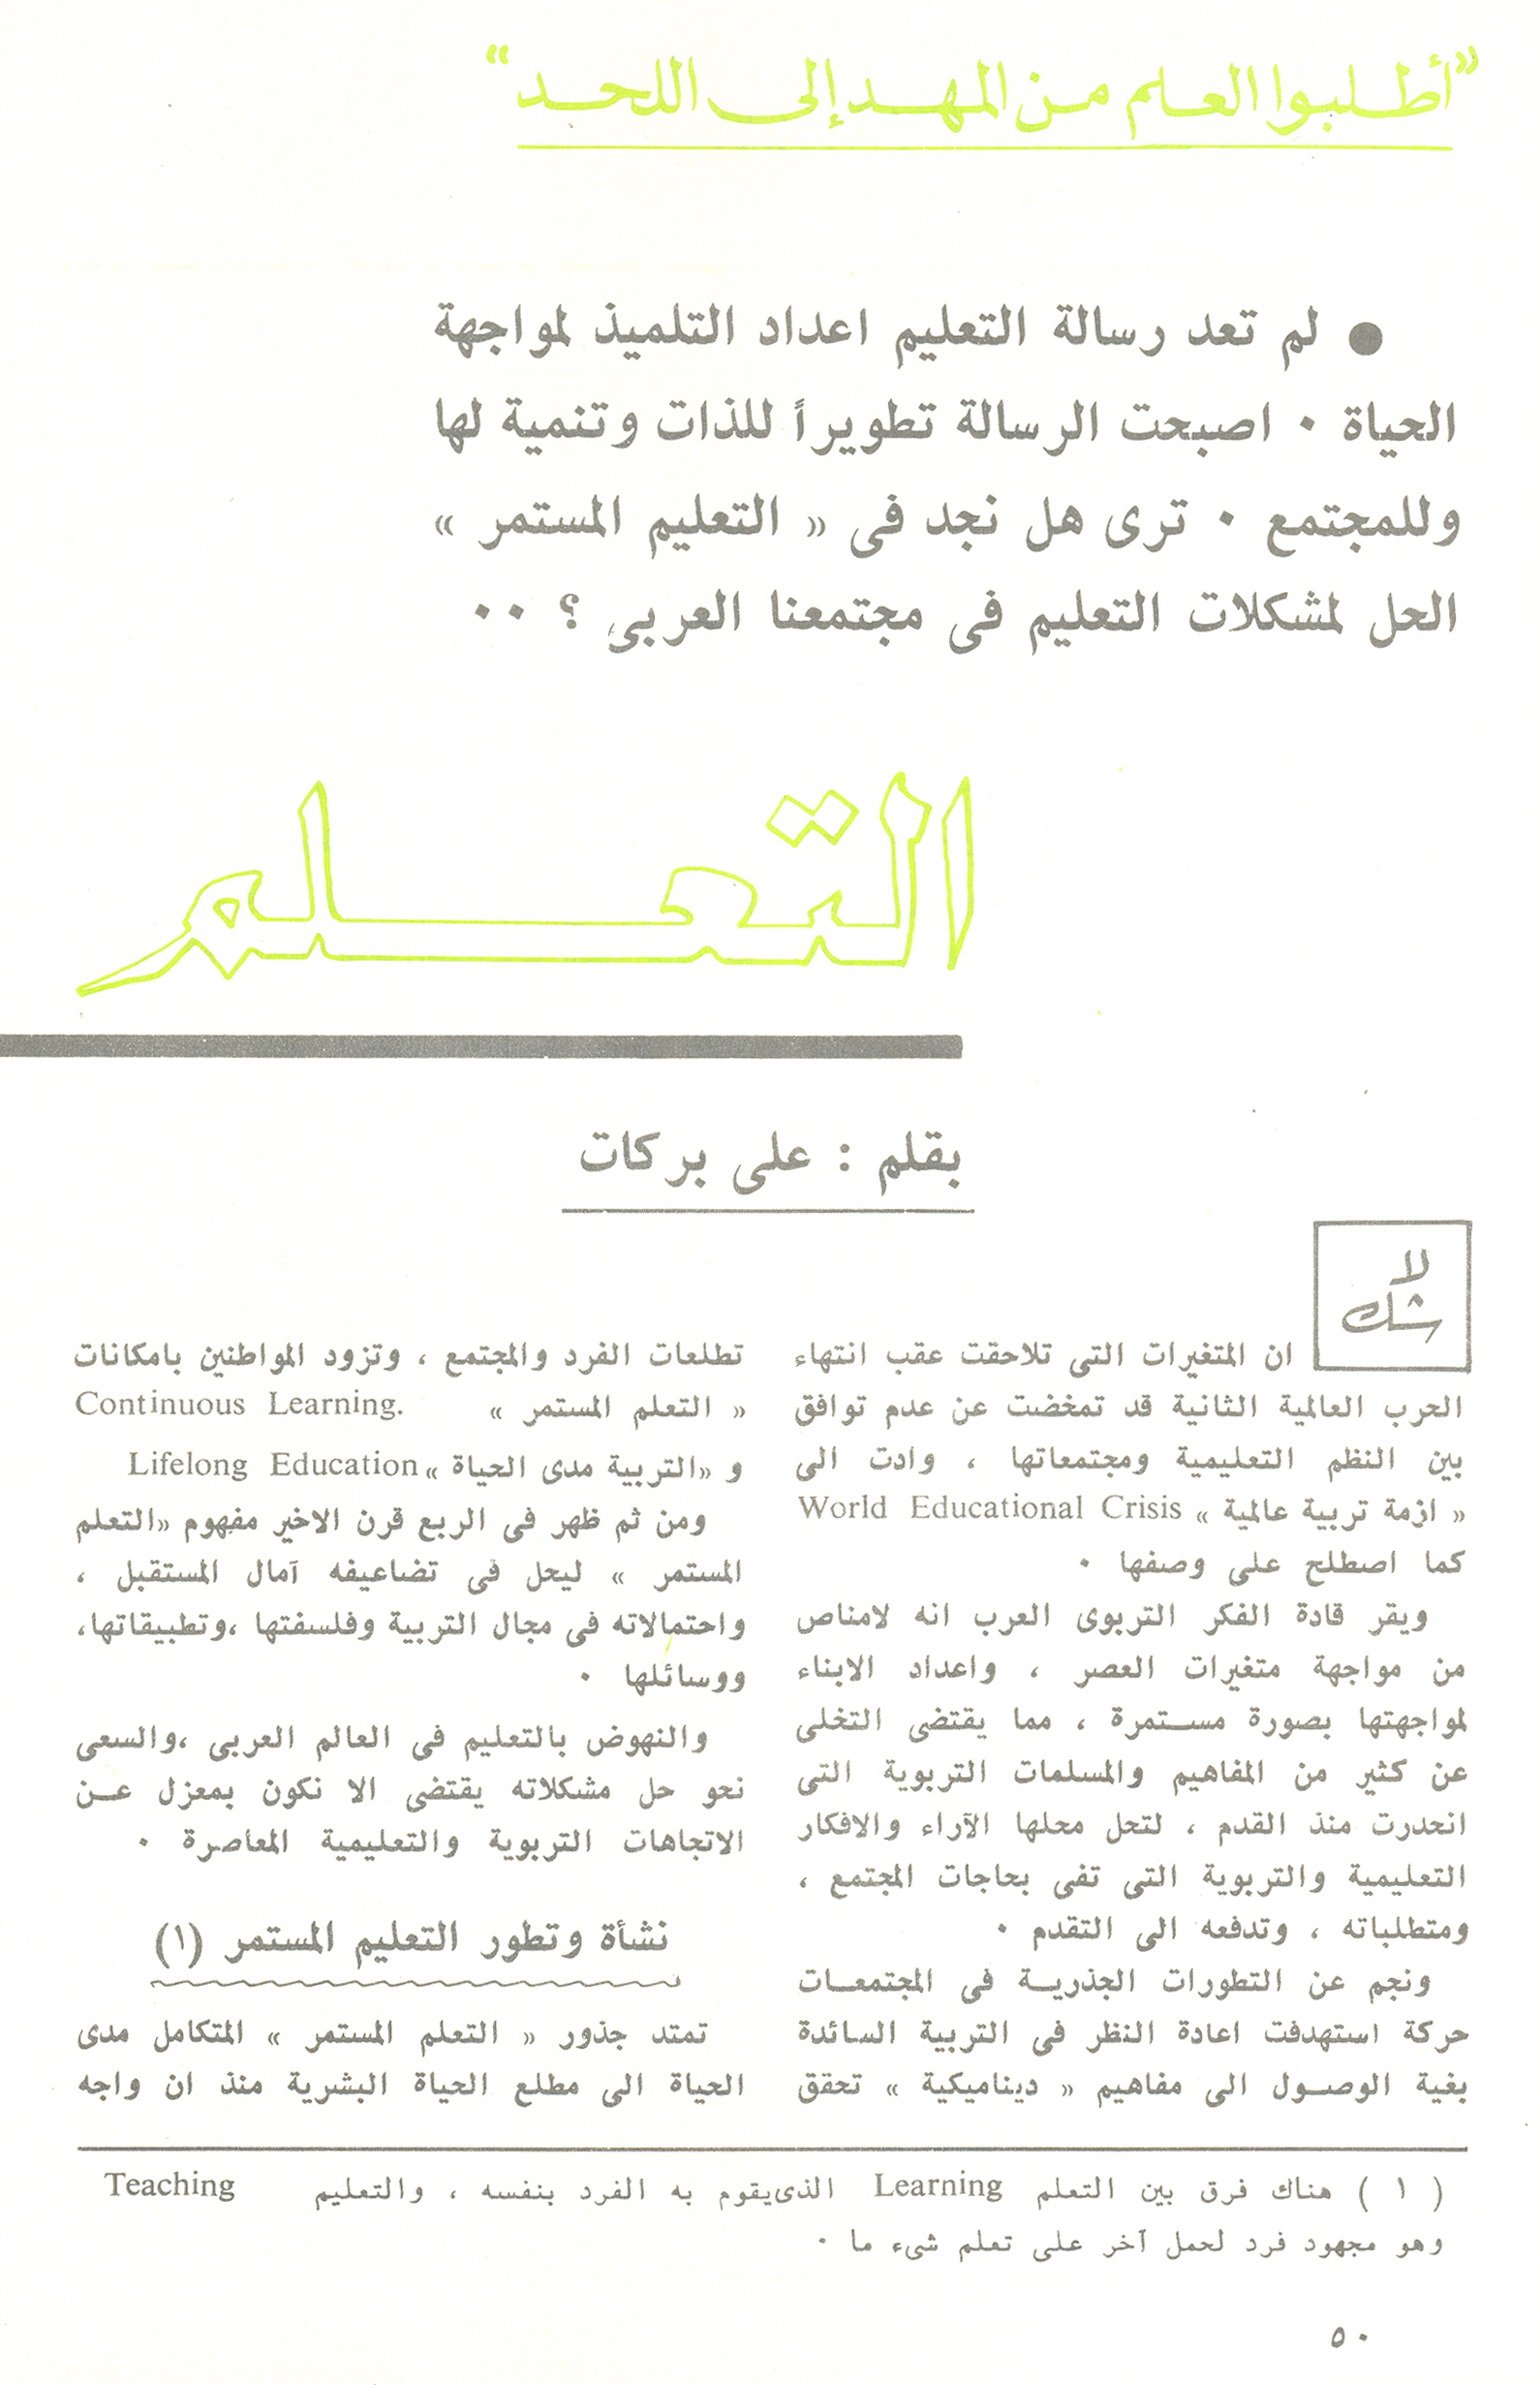 "أطلبوا العلم من المهد إلى اللحد"
● لم تعد رسالة التعليم اعداد التلميذ لمواجهة
الحياة ٠ اصبحت الرسالة تطويراً للذات وتنمية لها
وللمجتمع ٠ ترى هل نجد فى « التعليم المستمر »
الحل لمشكلات التعليم فى مجتمعنا العربى ؟ ٠٠
التعلم
بقلم : على بركات
لا
شك
ان المتغيرات التى تلاحقت عقب انتهاء
الحرب العالمية الثانية قد تمخضت عن عدم توافق
بين النظم التعليمية ومجتمعاتها ، وادت الى
« ازمة تربية عالمية » World Educational Crisis
كما اصطلح على وصفها ٠
ويقر قادة الفكر التربوى العرب انه لامناص
من مواجهة متغيرات العصر ، واعداد الابناء
لمواجهتها بصورة مستمرة ، مما يقتضى التخلى
عن كثير من المفاهيم والمسلمات التربوية التى
انحدرت منذ القدم ، لتحل محلها الآراء والافكار
التعليمية والتربوية التى تفى بحاجات المجتمع ،
ومتطلباته ، وتدفعه الى التقدم ٠
ونجم عن التطورات الجذرية فى المجتمعات
حركة استهدفت اعادة النظر فى التربية السائدة
بغية الوصول الى مفاهيم « ديناميكية » تحقق
تطلعات الفرد والمجتمع ، وتزود المواطنين بامكانات
« التعلم المستمر » Continuous Learning.
و «التربية مدى الحياة » Lifelong Education
ومن ثم ظهر فى الربع قرن الاخير مفهوم «التعلم
المستمر » ليحل فى تضاعيفه آمال المستقبل ،
واحتمالاته فى مجال التربية وفلسفتها ،وتطبيقاتها،
ووسائلها ٠
والنهوض بالتعليم فى العالم العربى ،والسعى
نحو حل مشكلاته يقتضى الا نكون بمعزل عن
الاتجاهات التربوية والتعليمية المعاصرة ٠
نشأة وتطور التعليم المستمر (١)
تمتد جذور « التعلم المستمر » المتكامل مدى
الحياة الى مطلع الحياة البشرية منذ ان واجه
( ١ ) هناك فرق بين التعلم Learning الذى يقوم به الفرد بنفسه ، والتعليم Teaching
وهو مجهود فرد لحمل آخر على تعلم شىء ما ٠
٥٠